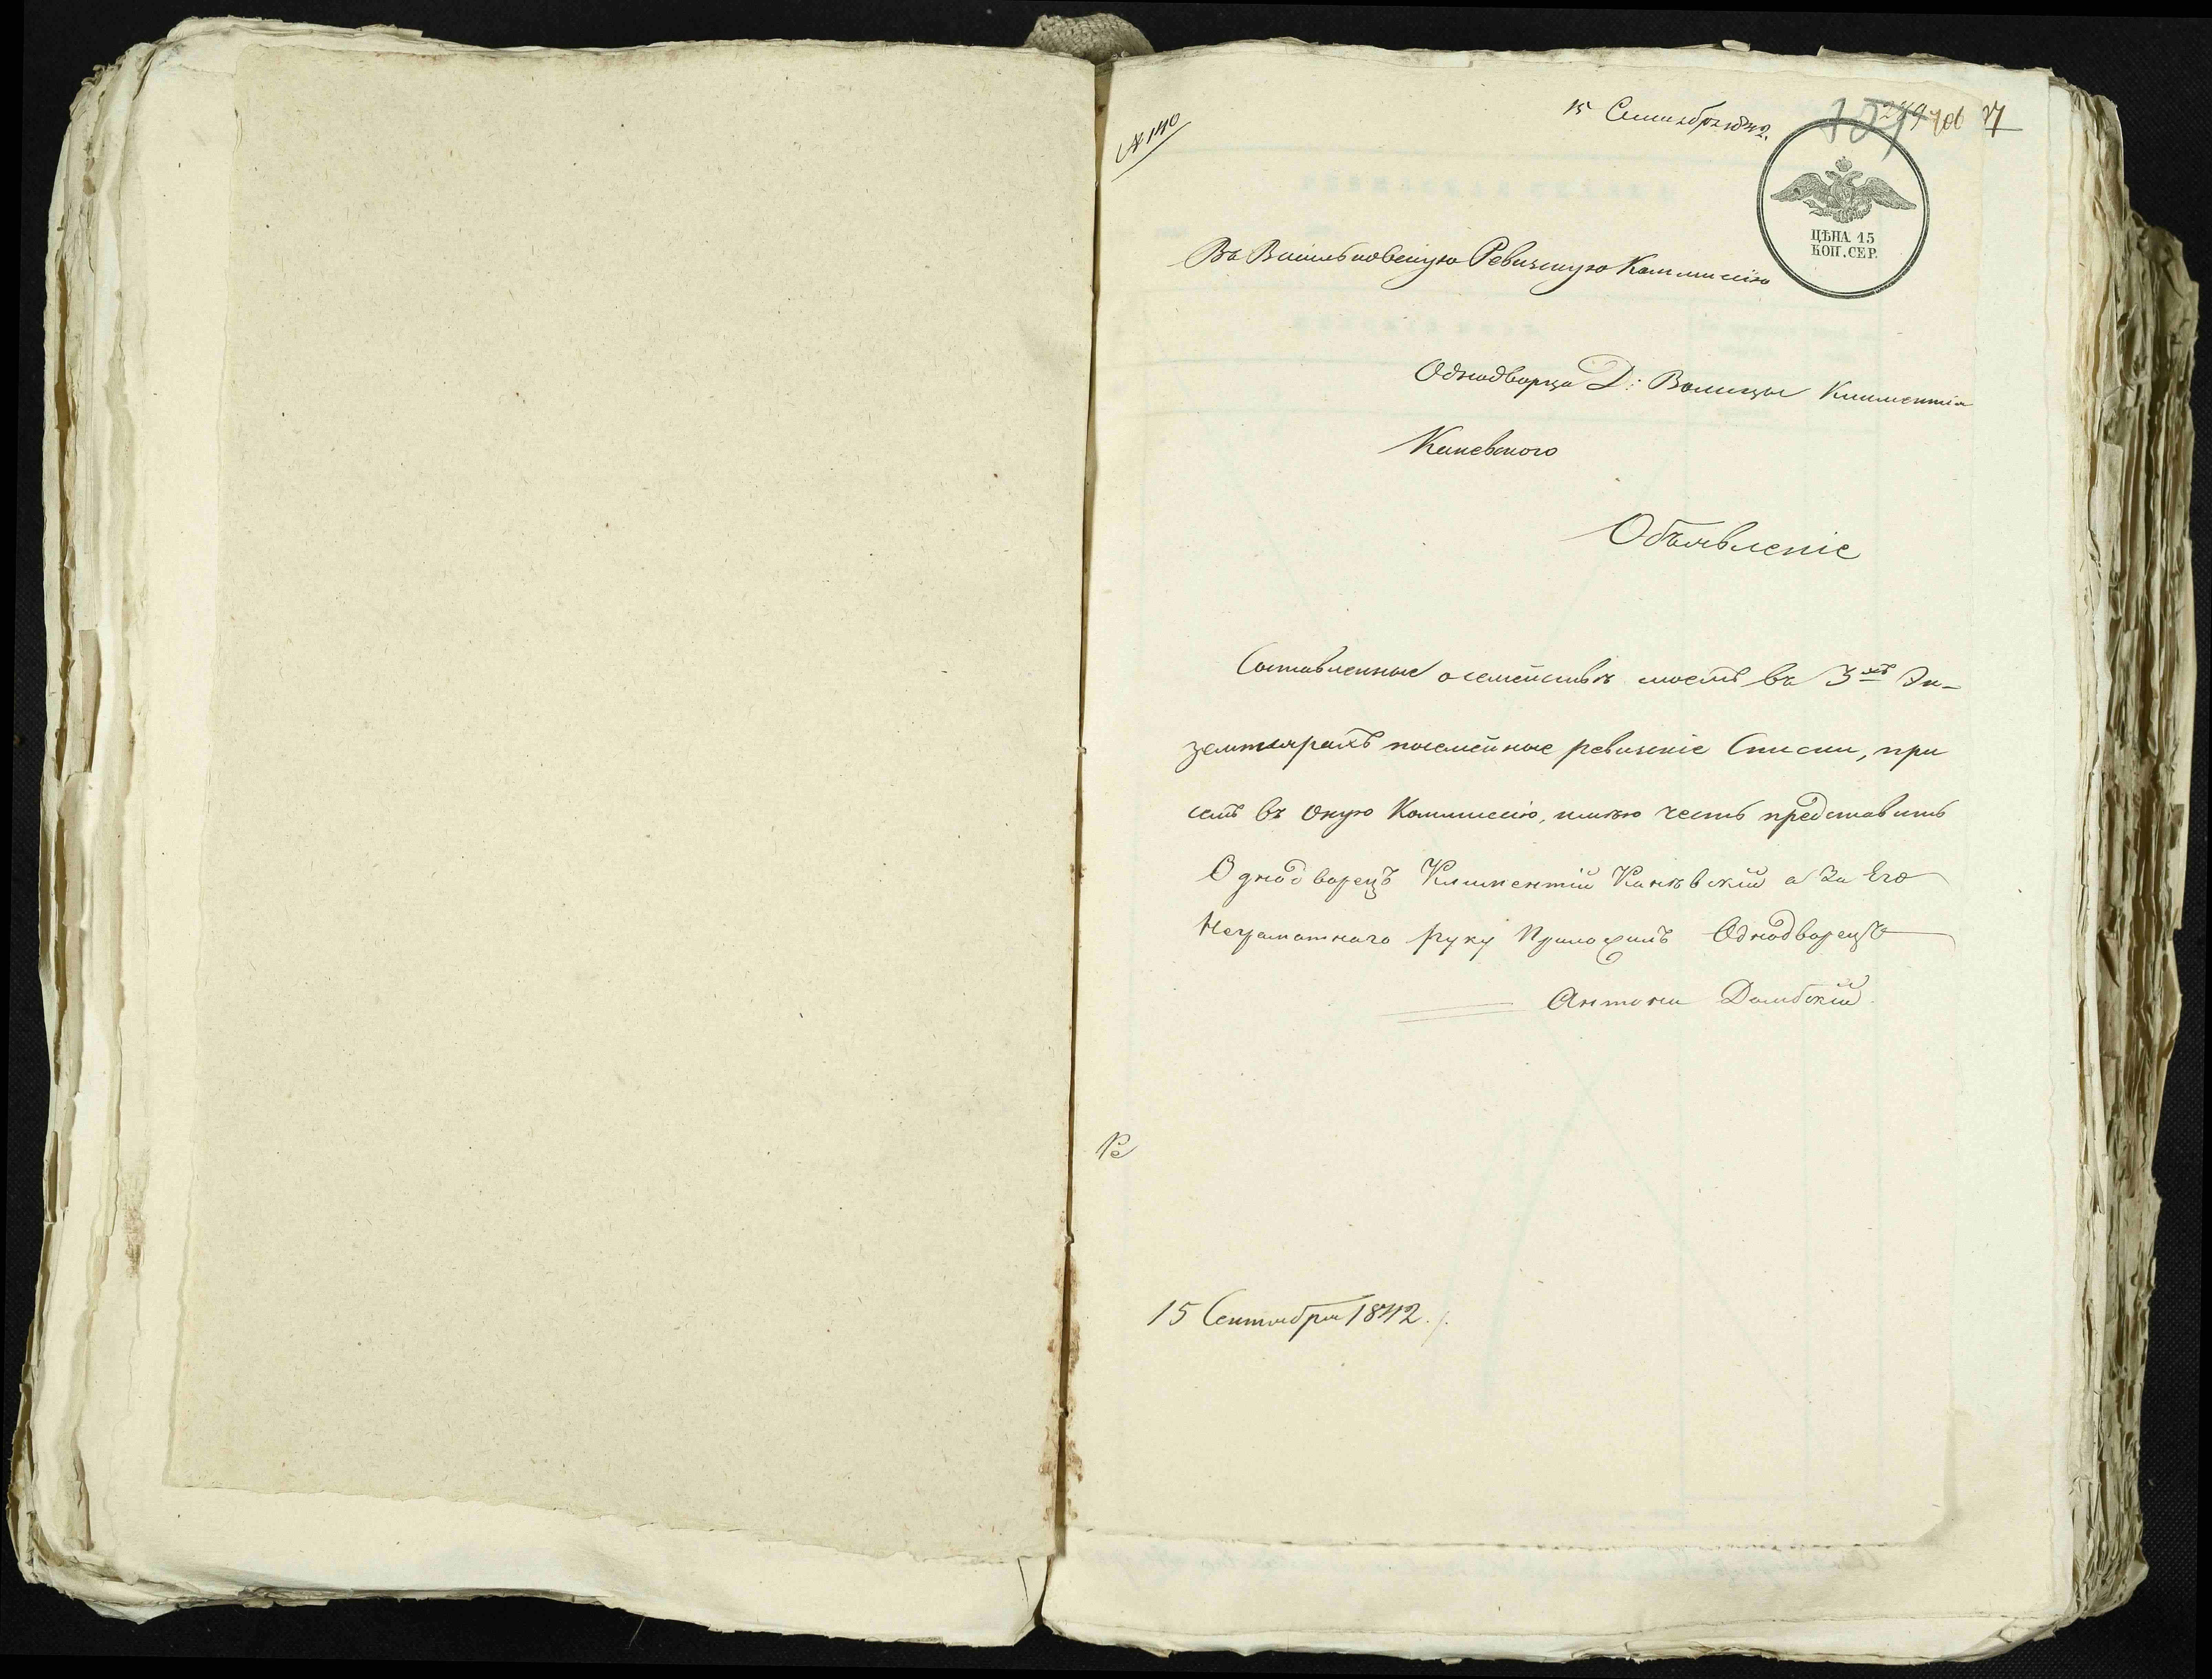 № 140
15 Сентября 1842.
ЦѢНА 15
КОП. СЕР.
Въ Васильковскую Ревизскую Коммисію
Однодворца Д: Волицы Климентія
Каневского
Объявленіе
Составленные о семействѣ моемъ въ 3хъ Эк-
земплярахъ посемейные ревизскіе Списки, при
семъ въ Оную Коммисію, имѣю честь представить
Однодворецъ Климентій Канѣвский а За Его
Неграмотнаго руку Приложилъ Однодворецъ
Антони Домбскій
15 Сентября 1842.